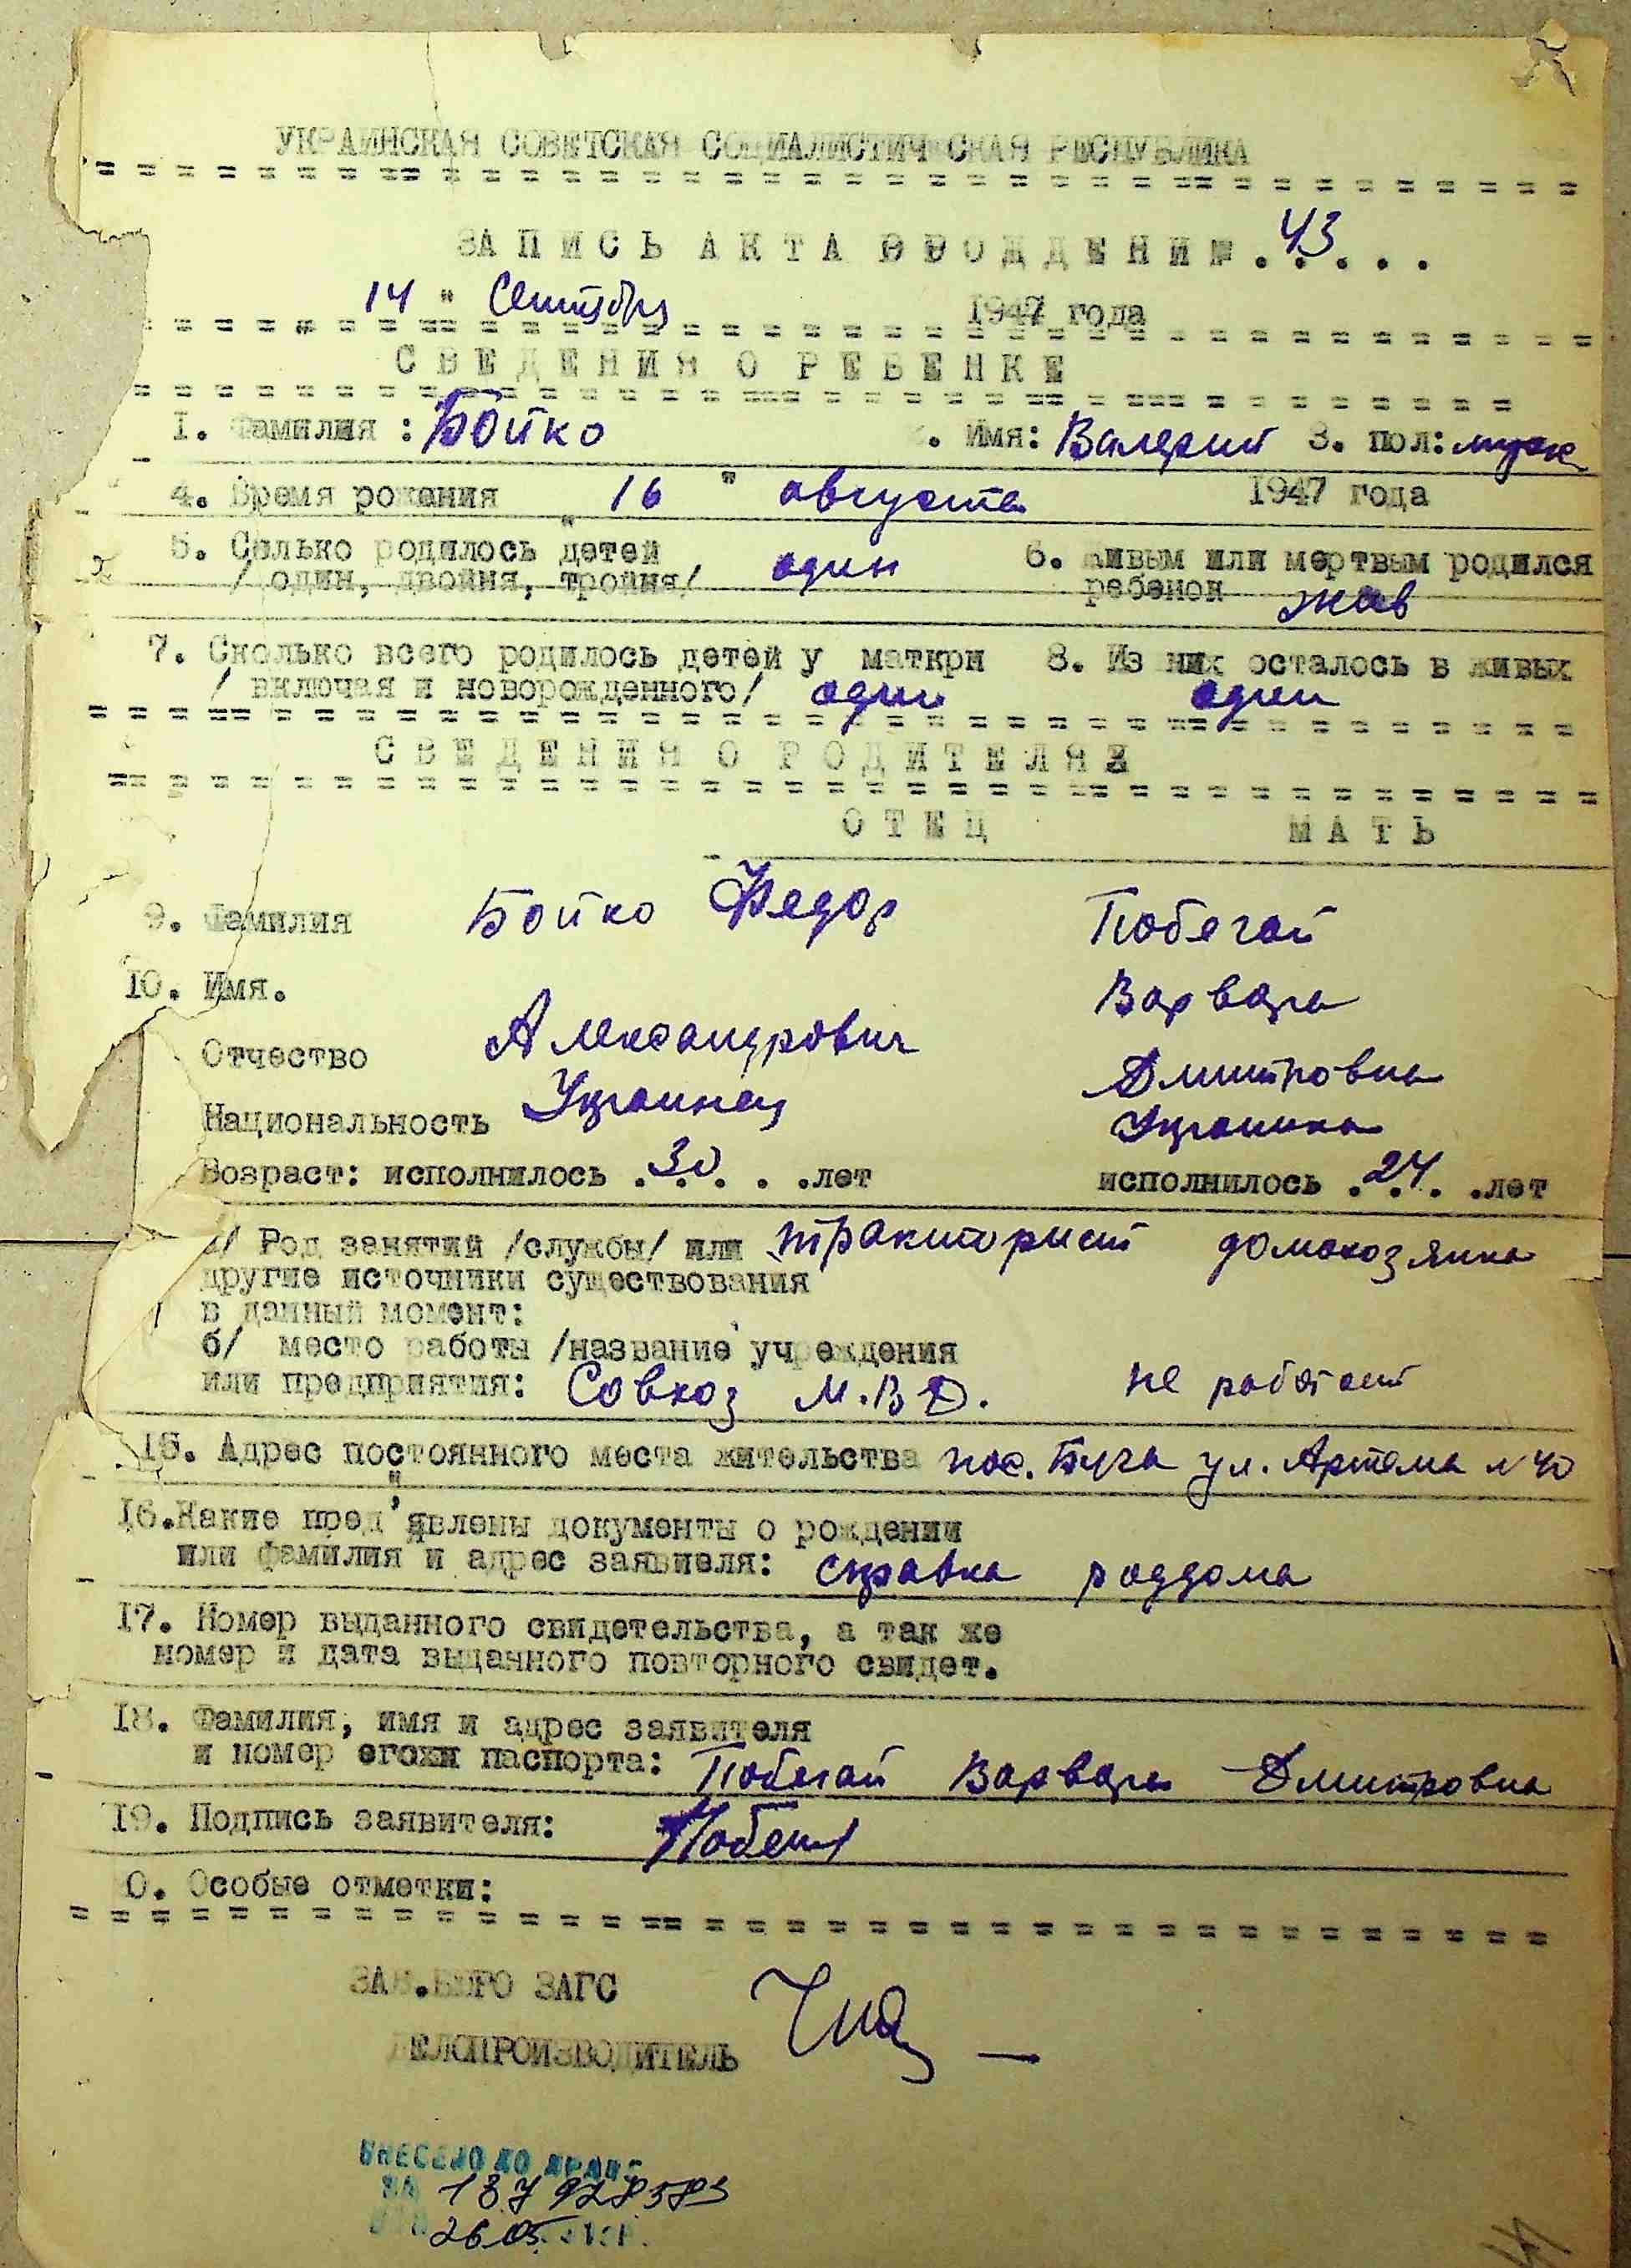 УКРАИНСКАЯ СОВЕТСКАЯ СОЦИАЛИСТИЧЕСКАЯ РЕСПУБЛИКА
ЗАПИСЬ АКТА О РОЖДЕНИИ № 43
14 " Сентября 1947 года
СВЕДЕНИЯ О РЕБЕНКЕ
1. Фамилия: Бойко 2. Имя: Валерий 3. пол: муж
4. Время рождения 16 " августа 1947 года
5. Сколько родилось детей 6. живым или мертвым родился
/ один, двойня, тройня/ один ребенок жив
7. Сколько всего родилось детей у маткри 8. Из них осталось в живых
/ включая и новорожденного/ один один
СВЕДЕНИЯ О РОДИТЕЛЯХ
ОТЕЦ МАТЬ
9. Фамилия Бойко Федор Побегай
10. Имя. Варвара
Отчество Александрович Дмитровна
Национальность Украинец Украинка
Возраст: исполнилось 30 лет исполнилось 24 лет
а/ Род занятий /службы/ или тракторист домохозяика
другие источники существования
в данный момент:
б/ место работы /название учреждения
или предприятия: Совхоз М.В.Д. не работает
15. Адрес постоянного места жительства пос. Буча ул. Артема №40
16. Какие пред'явлены документы о рождении
или фамилия и адрес заявиеля: справка роддома
17. Номер выданного свидетельства, а так же
номер и дата выданного повторного свидет.
18. Фамилия, имя и адрес заявителя
и номер его паспорта: Побегай Варвара Дмитровна
19. Подпись заявителя:
0. Особые отметки:
ЗАВ.БЮРО ЗАГС
ДЕЛОПРОИЗВОДИТЕЛЬ
ВНЕСЕНО ДО ДРАЦС
26.05.